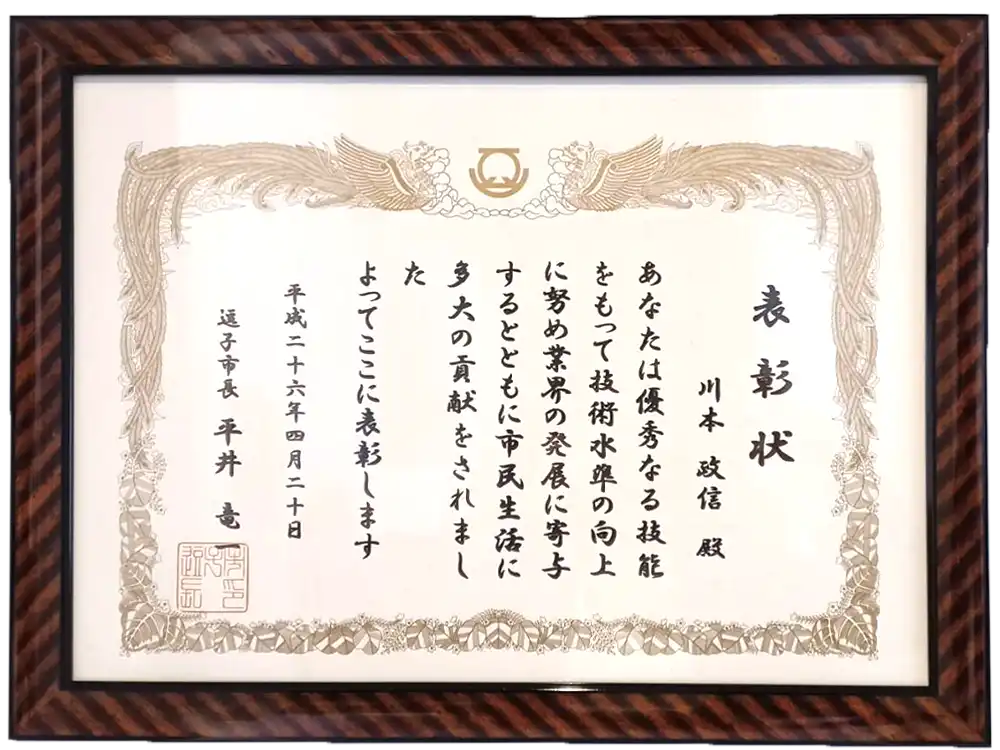 表彰状
川本 政信 殿
あなたは優秀なる技能
をもって技術水準の向上
に努め業界の発展に寄与
するとともに市民生活に
多大の貢献をされまし
た
よってここに表彰します
平成二十六年四月二十日
逗子市長 平井 竜一